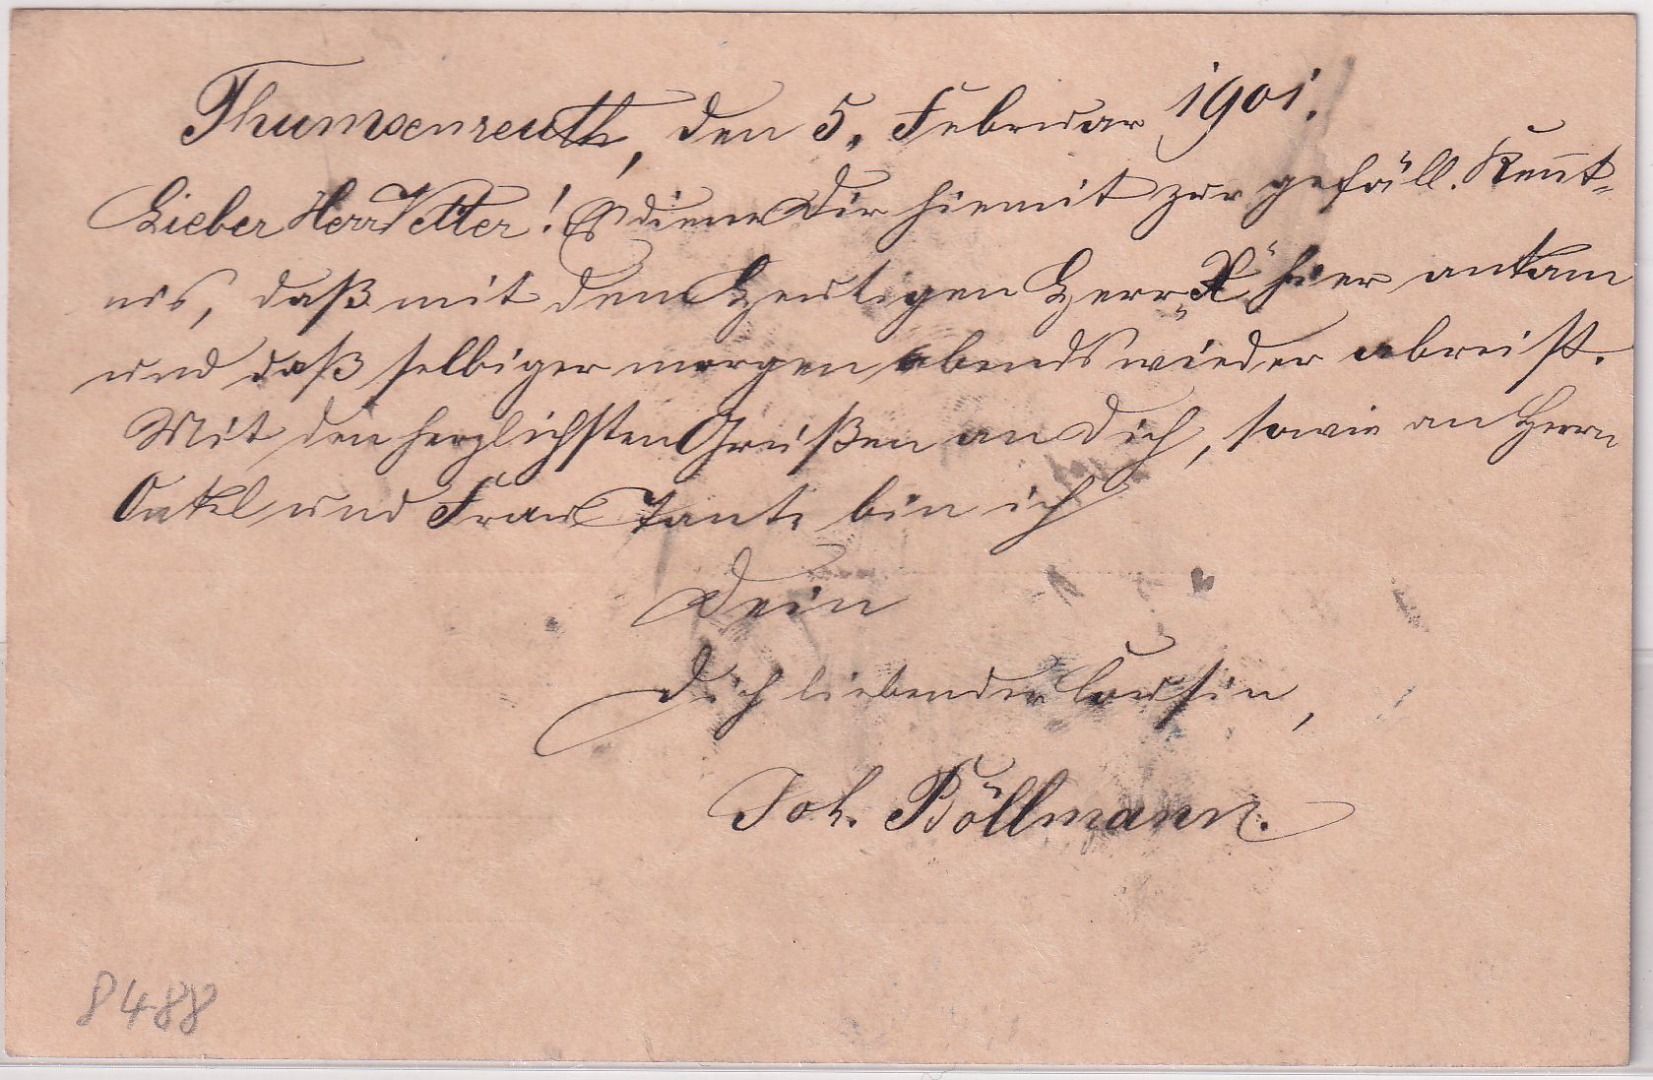 Thumsenreuth, den 5. Februar 1901.
Lieber Herr Vetter! Es diene Dir hiemit zur gefäll. Kennt-
nis, daß mit dem Heutigen Herr „X“ hier ankam
und daß selbiger morgen abends wieder abreist.
Mit den herzlichsten Grüßen an Dich, sowie an Herrn
Onkel und Frau Tante bin ich
Dein
Dich liebender Cousin,
Joh. Böllmann.
8488